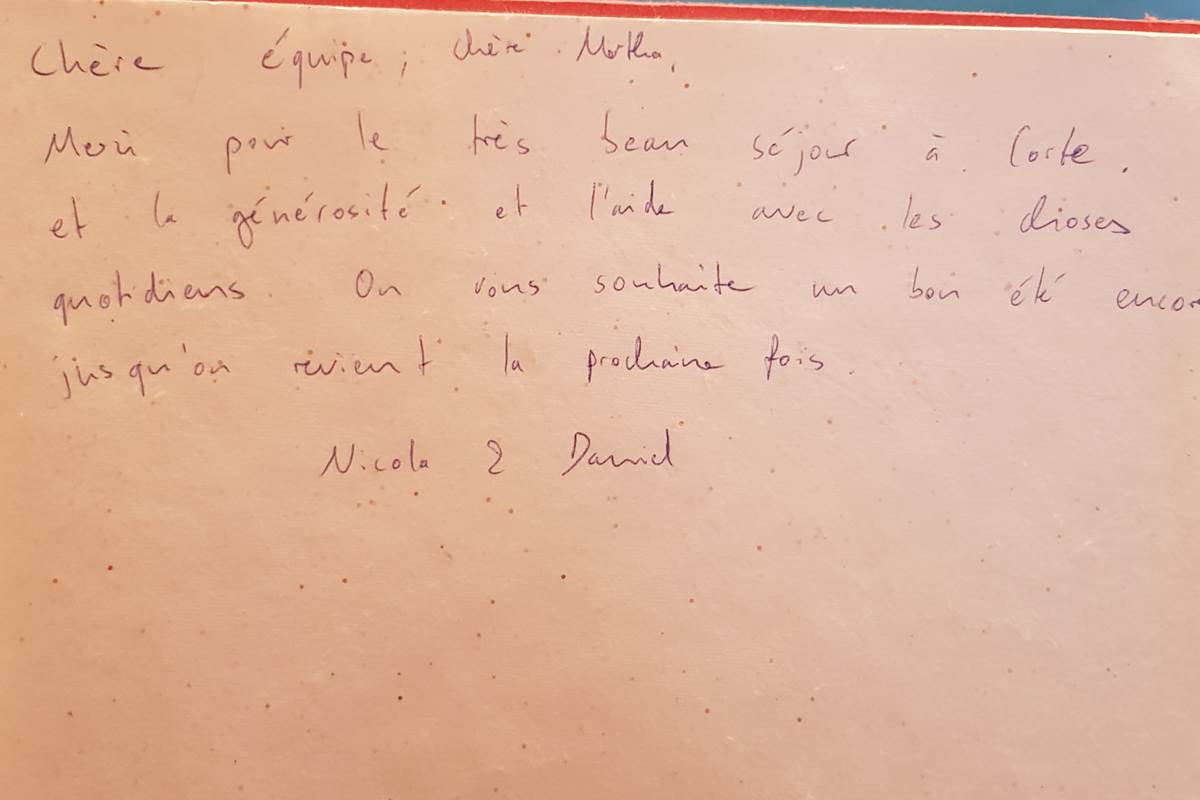 Chère équipe, chère Martha,
Merci pour le très beau séjour à Corte.
et la générosité et l'aide avec les choses
quotidiens. On vous souhaite un bon été encore
jusqu'on revient la prochaine fois.
Nicola & Daniel